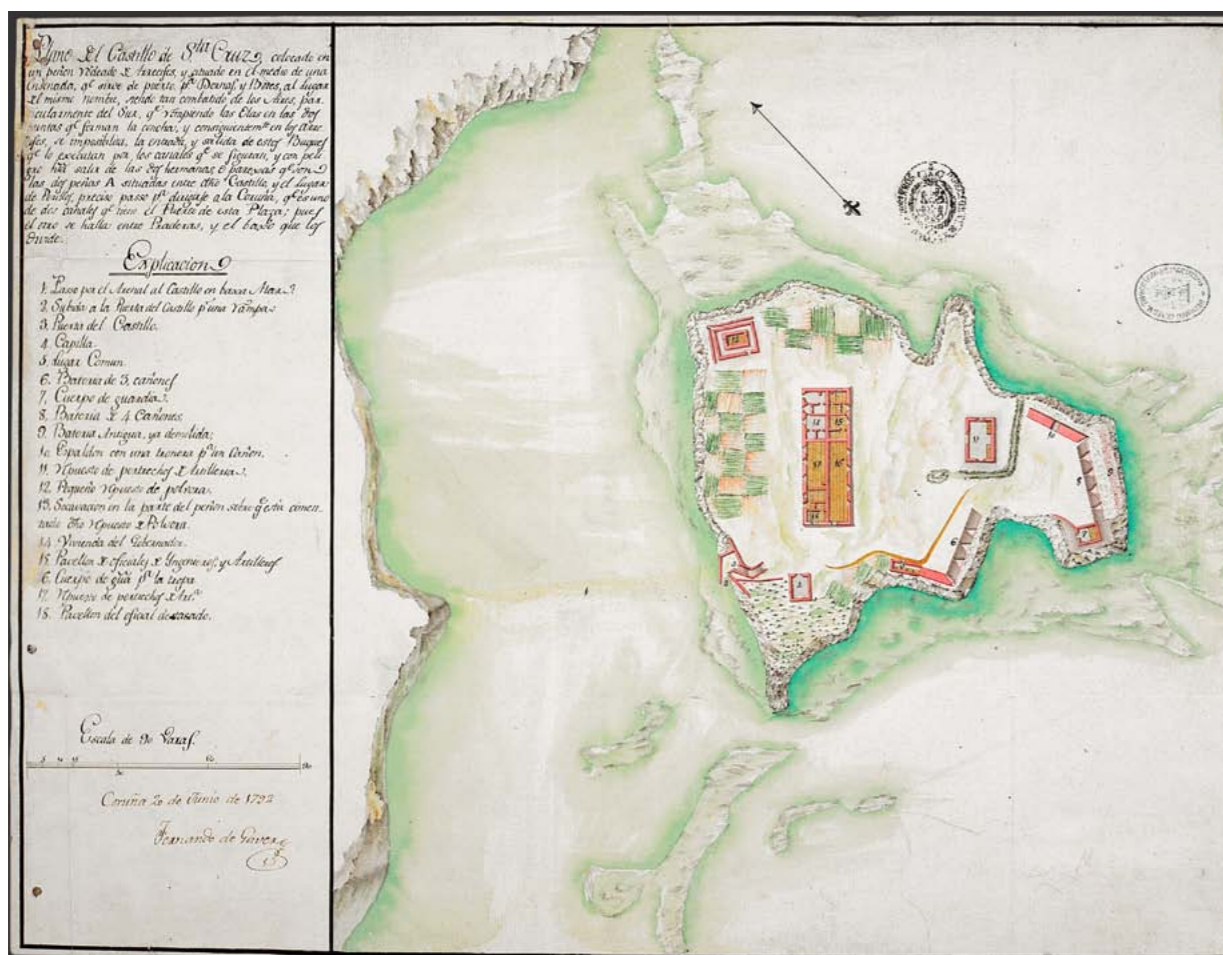 Plano del Castillo de Sta Cruz, colocado en
un peñon rodeado de Arrecifes, y situado en el medio de una
Ensenada, qe sirve de puerto, pa y Botes, al lugar
del mismo nombre, siendo tan combatido de los Aires, par-
ticularmente del Sur, qe rompiendo las Olas en las dos
puntas qe forman la concha, y consiguientemte en los Arre-
cifes, se imposibilita, la entrada, y salida de estos Buques
qe lo executan por los canales qe se figuran, y con peli-
gro han salir de las dos hermanas, ó parexas qe son
las dos peñas A situadas entre dho Castillo, y el lugar
de preciso passo pa dirigirse a la Coruña, qe es uno
de dos canales qe tiene el Puerto de esta Plaza; pues
el otro se halla entre Praderas, y el baxo que los
divide.
Explicacion
1. Passo por el Arenal al Castillo en baxa Mar.
2. Subida a la Puerta del Castillo pr una rampa.
3. Puerta del Castillo.
4. Capilla.
5. Lugar Comun.
6. Bateria de 3 cañones
7. Cuerpo de guardia.
8. Bateria de 4 Cañones.
9. Bateria Antigua, ya demolida;
10. Espaldon con una tronera pa un Cañon.
11. Repuesto de pertrechos de Artilleria.
12. Pequeño repuesto de polvora.
13. Socavacion en la parte del peñon sobre qe está cimen-
tado dho repuesto de Polvora.
14. Vivienda del Gobernador.
15. Pavellon de oficiales de Yngenieros, y Artilleros
16. Cuerpo de gua pa la tropa
17. Repuesto de pertrechos de Arta
18. Pavellon del oficial destacado.
Escala de 90 Varas.
Coruña 20 de Junio de 1792
Fernando de Gaver